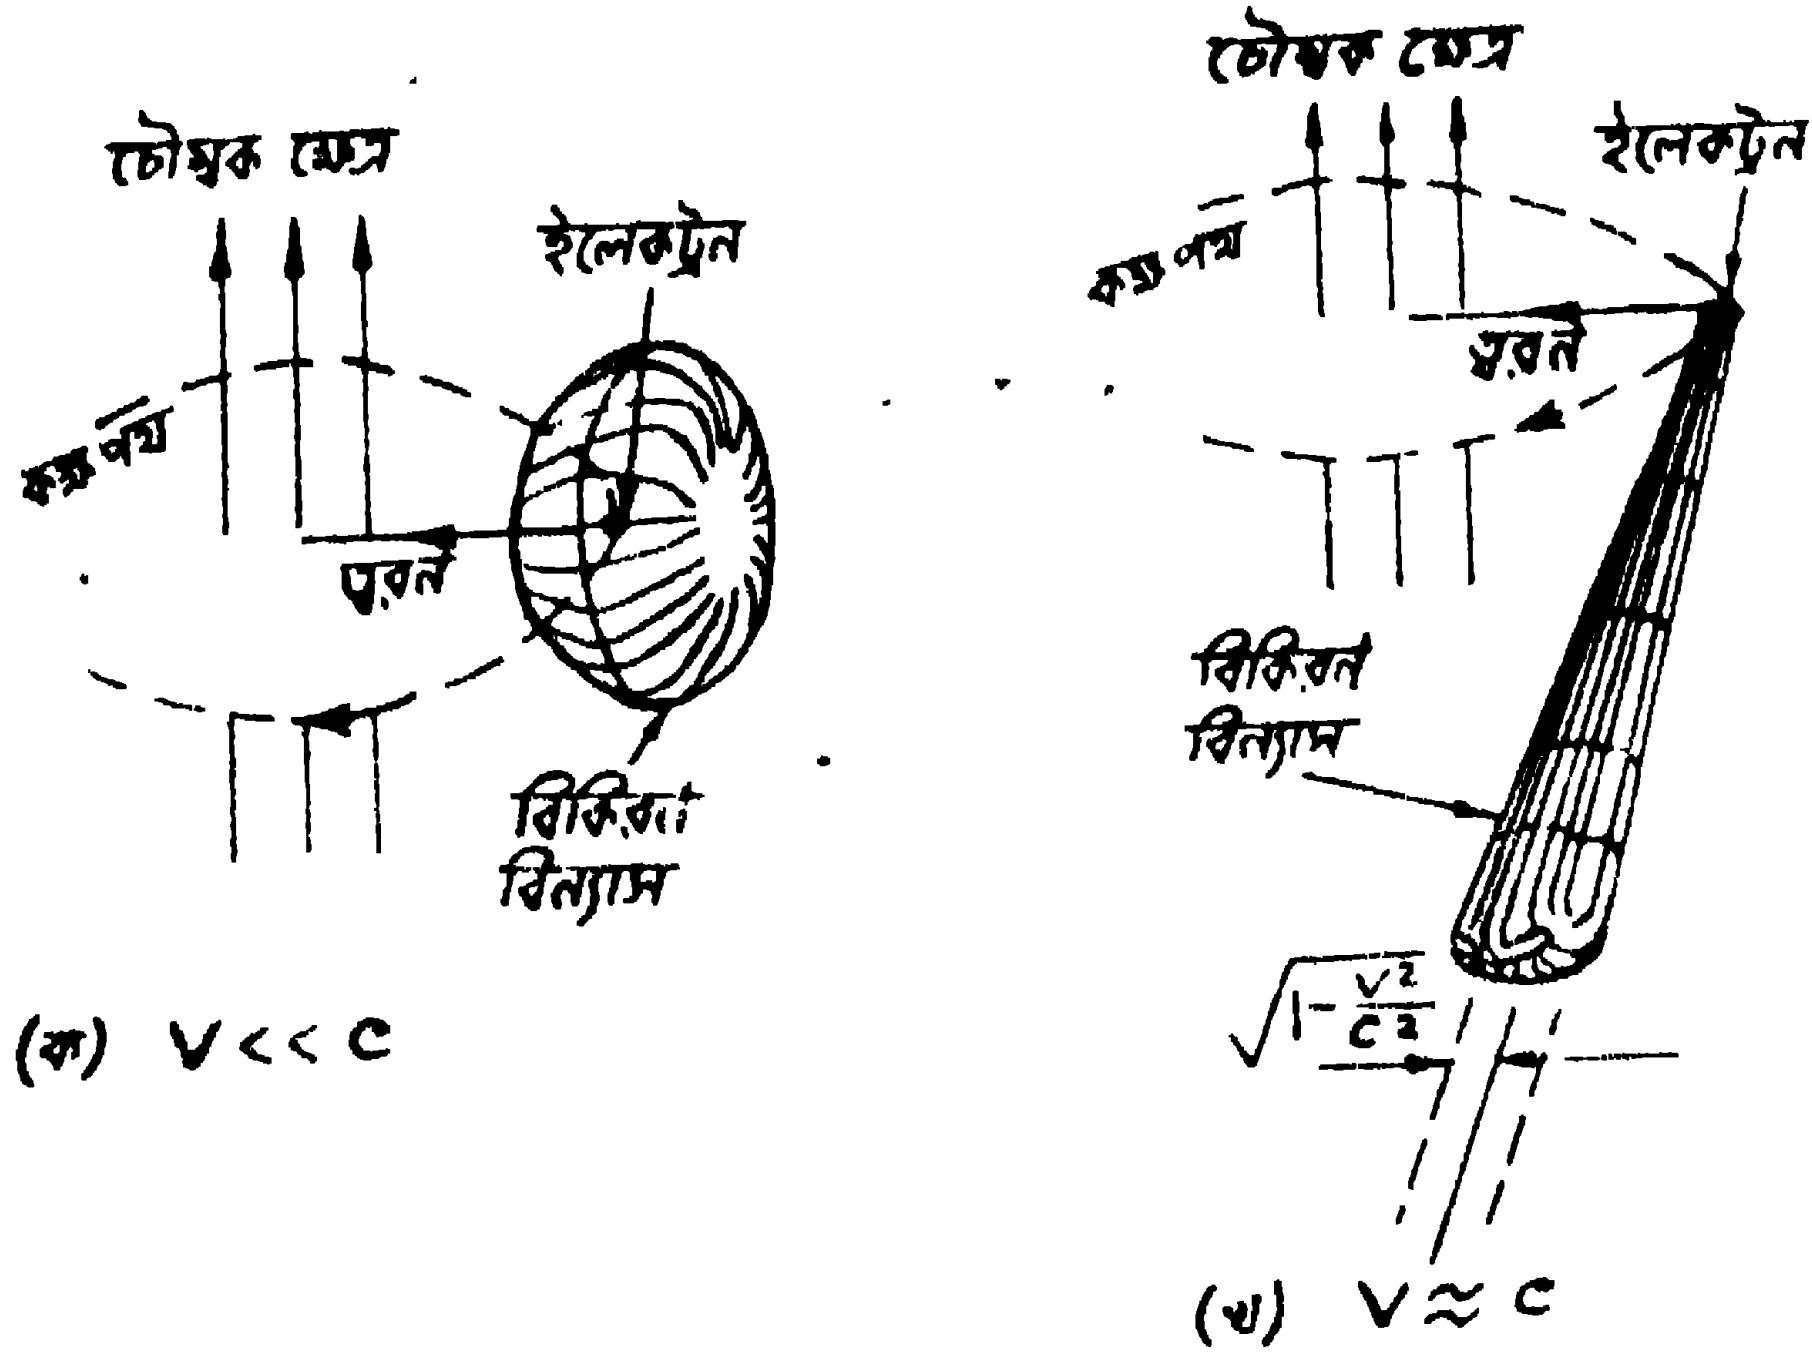 চৌম্বক ক্ষেত্র
ইলেকট্রন
কক্ষ পথ
ত্বরন
বিকিরন
বিন্যাস
(ক) V << C
চৌম্বক ক্ষেত্র
ইলেকট্রন
কক্ষ পথ
ত্বরন
বিকিরন
বিন্যাস
√1 - V²/C²
(খ) V ≈ C